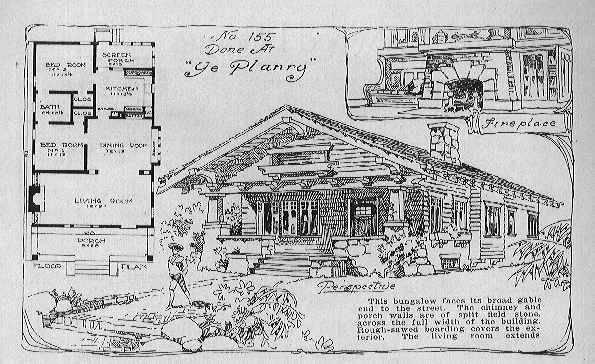 No 155
Done At
"Ye Planry"
SCREEN
PORCH
BED ROOM
KITCHEN
BATH
CLOS
CLOS
BED ROOM
DINING ROOM
LIVING ROOM
PORCH
FLOOR PLAN
Fireplace
Perspective
This bungalow faces its broad gable
end to the street. The chimney and
porch walls are of split field stone,
across the full width of the building.
Rough-sawed boarding covers the ex-
terior. The living room extends